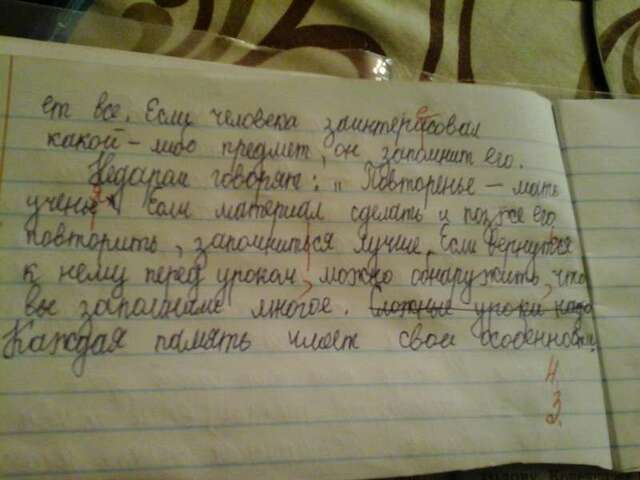 ет все. Если человека заинтерисовал
какой-либо предмет, он запомнит его.
Недаром говорят: „Повторенье – мать
ученья". Если материал сделать и позже его
повторить, запомниться лучше. Если вернуться
к нему перед уроком можно обнаружить, что
вы запомнили многое. Сложные уроки надо
Каждая память имеет свои особенности.
4
3.